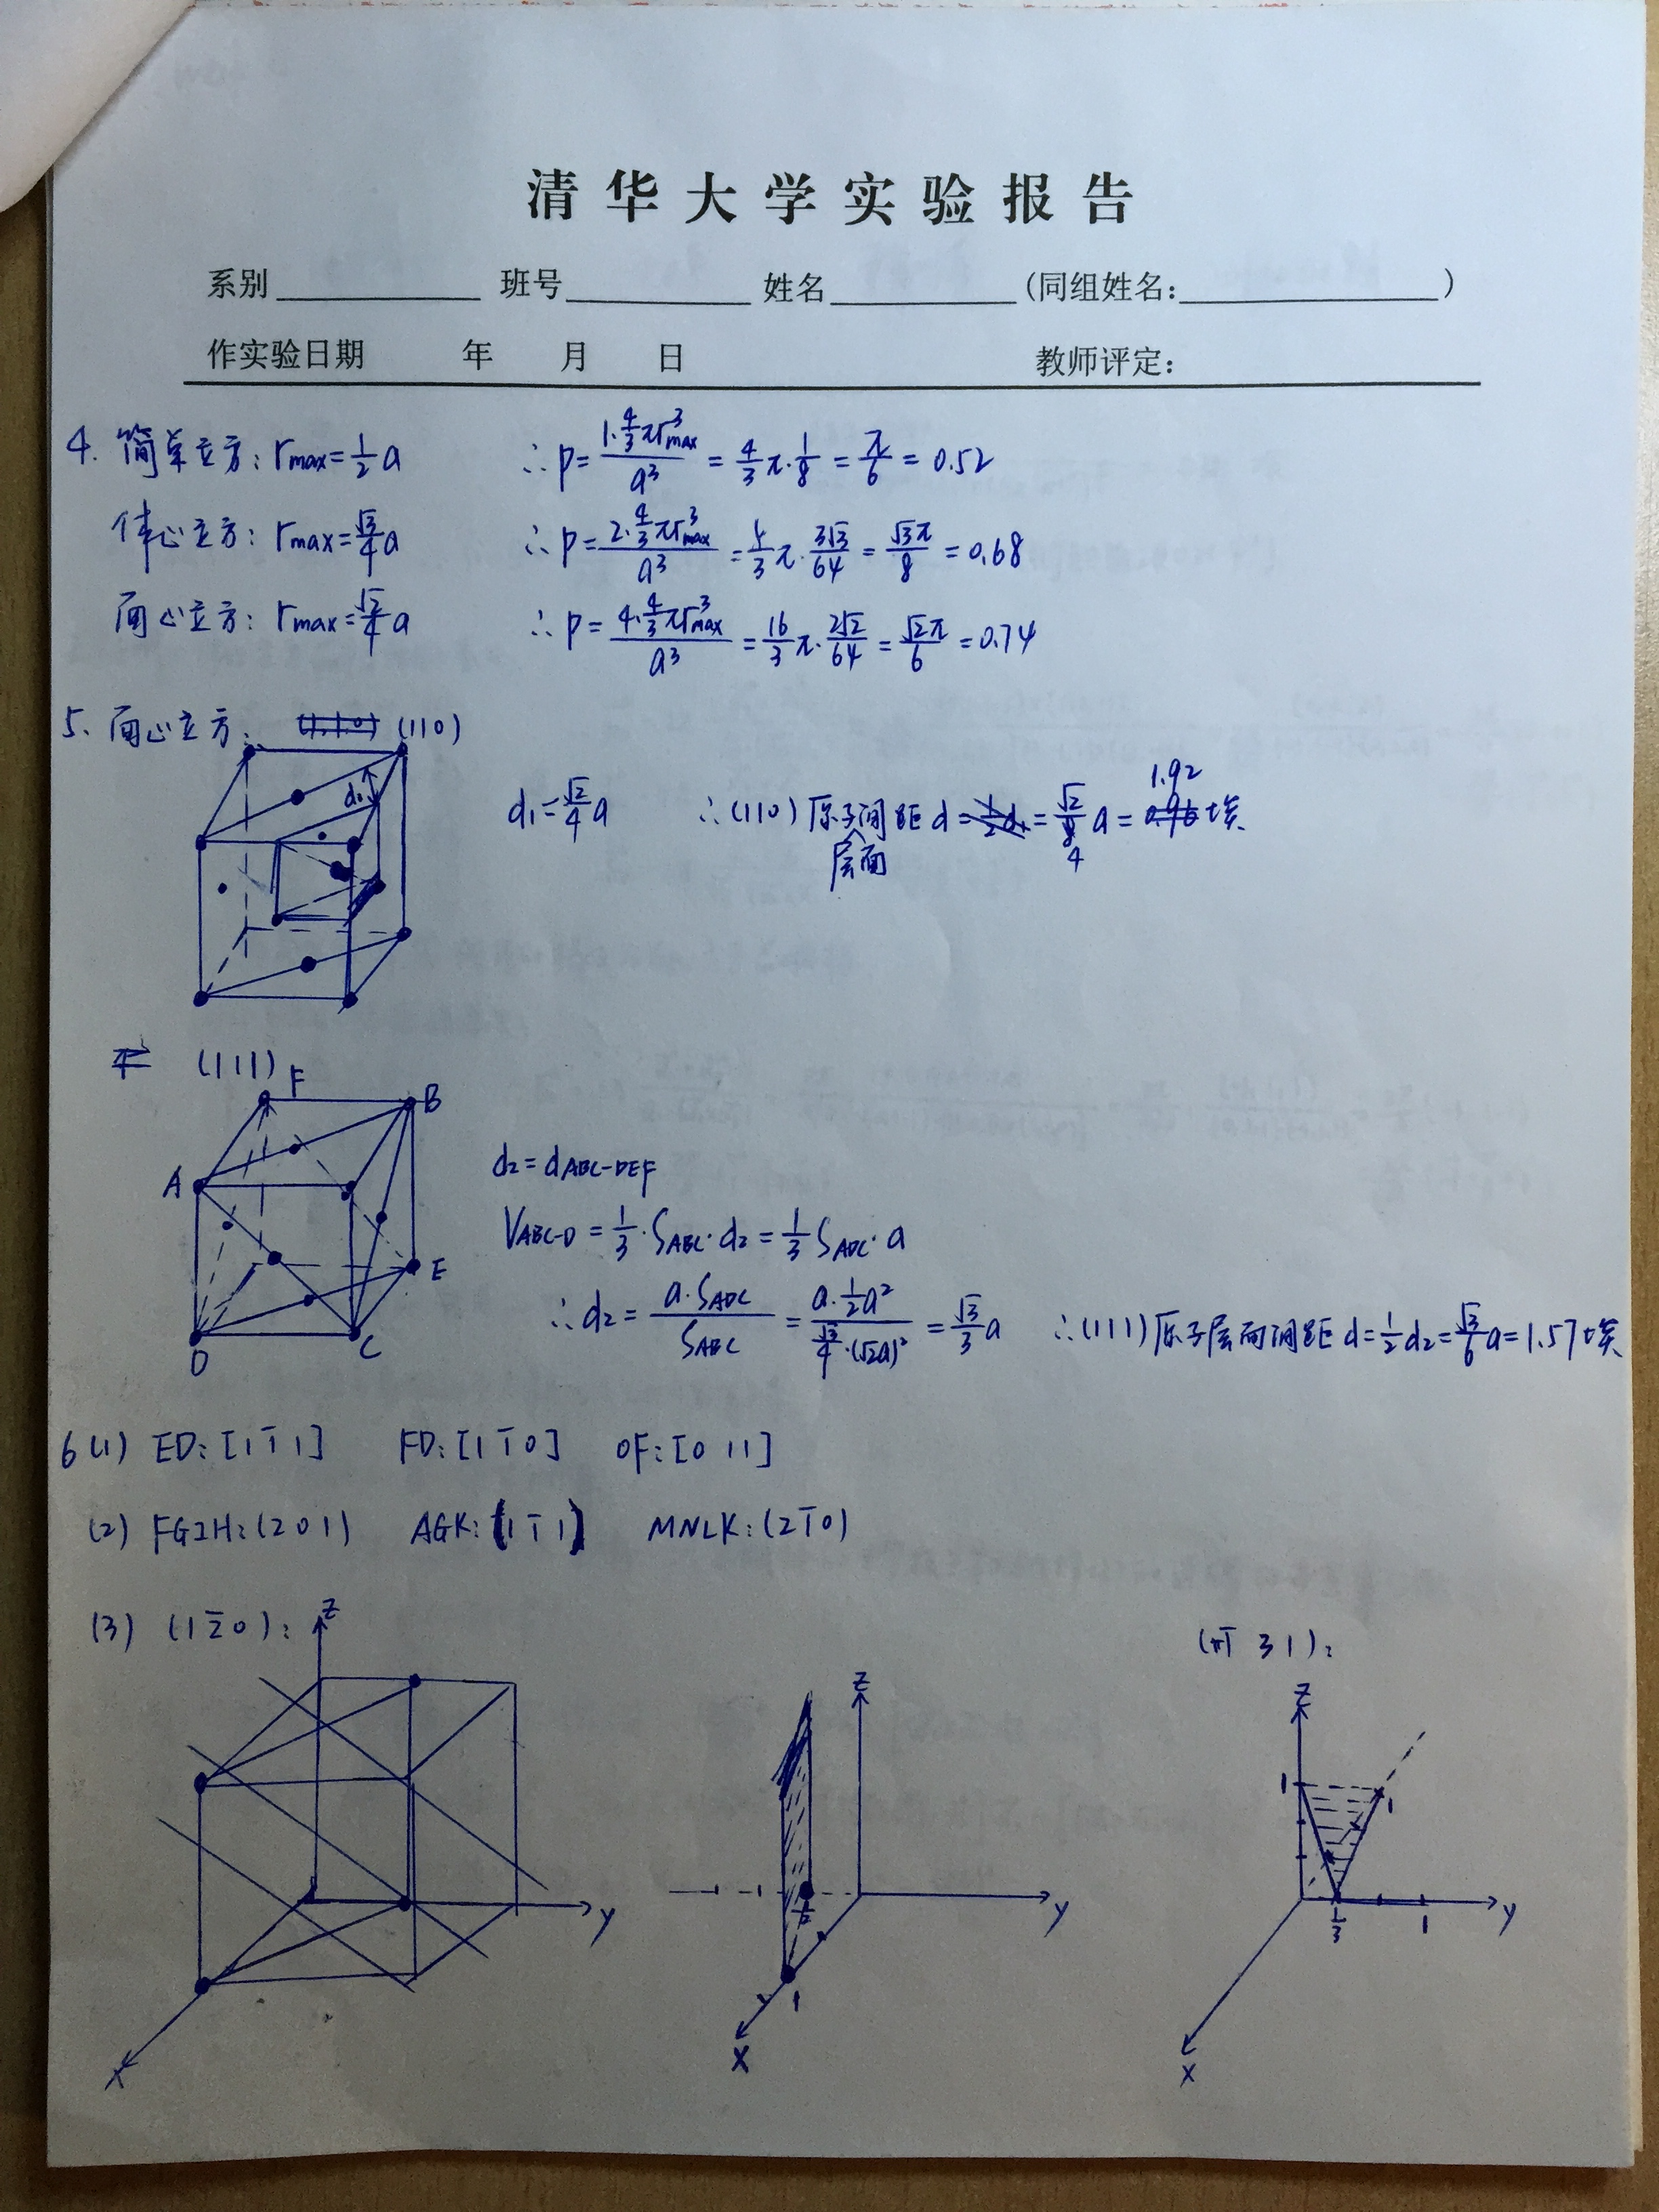 清华大学实验报告
系别 班号 姓名 (同组姓名: )
作实验日期 年 月 日 教师评定:
4. 简单立方: r_max = 1/2 a ∴ p = (1·4/3 π r_max³)/a³ = 4/3 π · 1/8 = π/6 = 0.52
体心立方: r_max = √3/4 a ∴ p = (2·4/3 π r_max³)/a³ = π · 3√3/64 = √3π/8 = 0.68
面心立方: r_max = √2/4 a ∴ p = (4·4/3 π r_max³)/a³ = 16/3 π · 2√2/64 = √2π/6 = 0.74
5. 面心立方: (110)
d₁
d₁ = √2/4 a ∴ (110) 原子层面间距 d = √2/4 a = 1.92 埃
(111)
F B
A
E
D C
d₂ = d_ABC-DEF
V_ABC-D = 1/3 · S_ABC · d₂ = 1/3 S_ADC · a
∴ d₂ = (a · S_ADC)/S_ABC = (a · 1/2 a²)/(√3/4 · (√2a)²) = √3/3 a ∴ (111) 原子层面间距 d = 1/2 d₂ = √3/6 a = 1.57 埃
6 (1) ED: [1 1̄ 1] FD: [1 1̄ 0] OF: [0 1 1]
(2) FGIH: (2 0 1) AGK: (1 1̄ 1) MNLK: (2 1̄ 0)
(3) (1 2̄ 0): (1̄ 3 1):
Z Z Z
1 1
Y 1/2 Y 1/3 1 Y
1
X X X